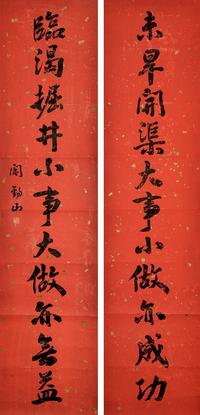 未旱開渠大事小做亦成功
臨渴掘井小事大做亦無益
閻錫山